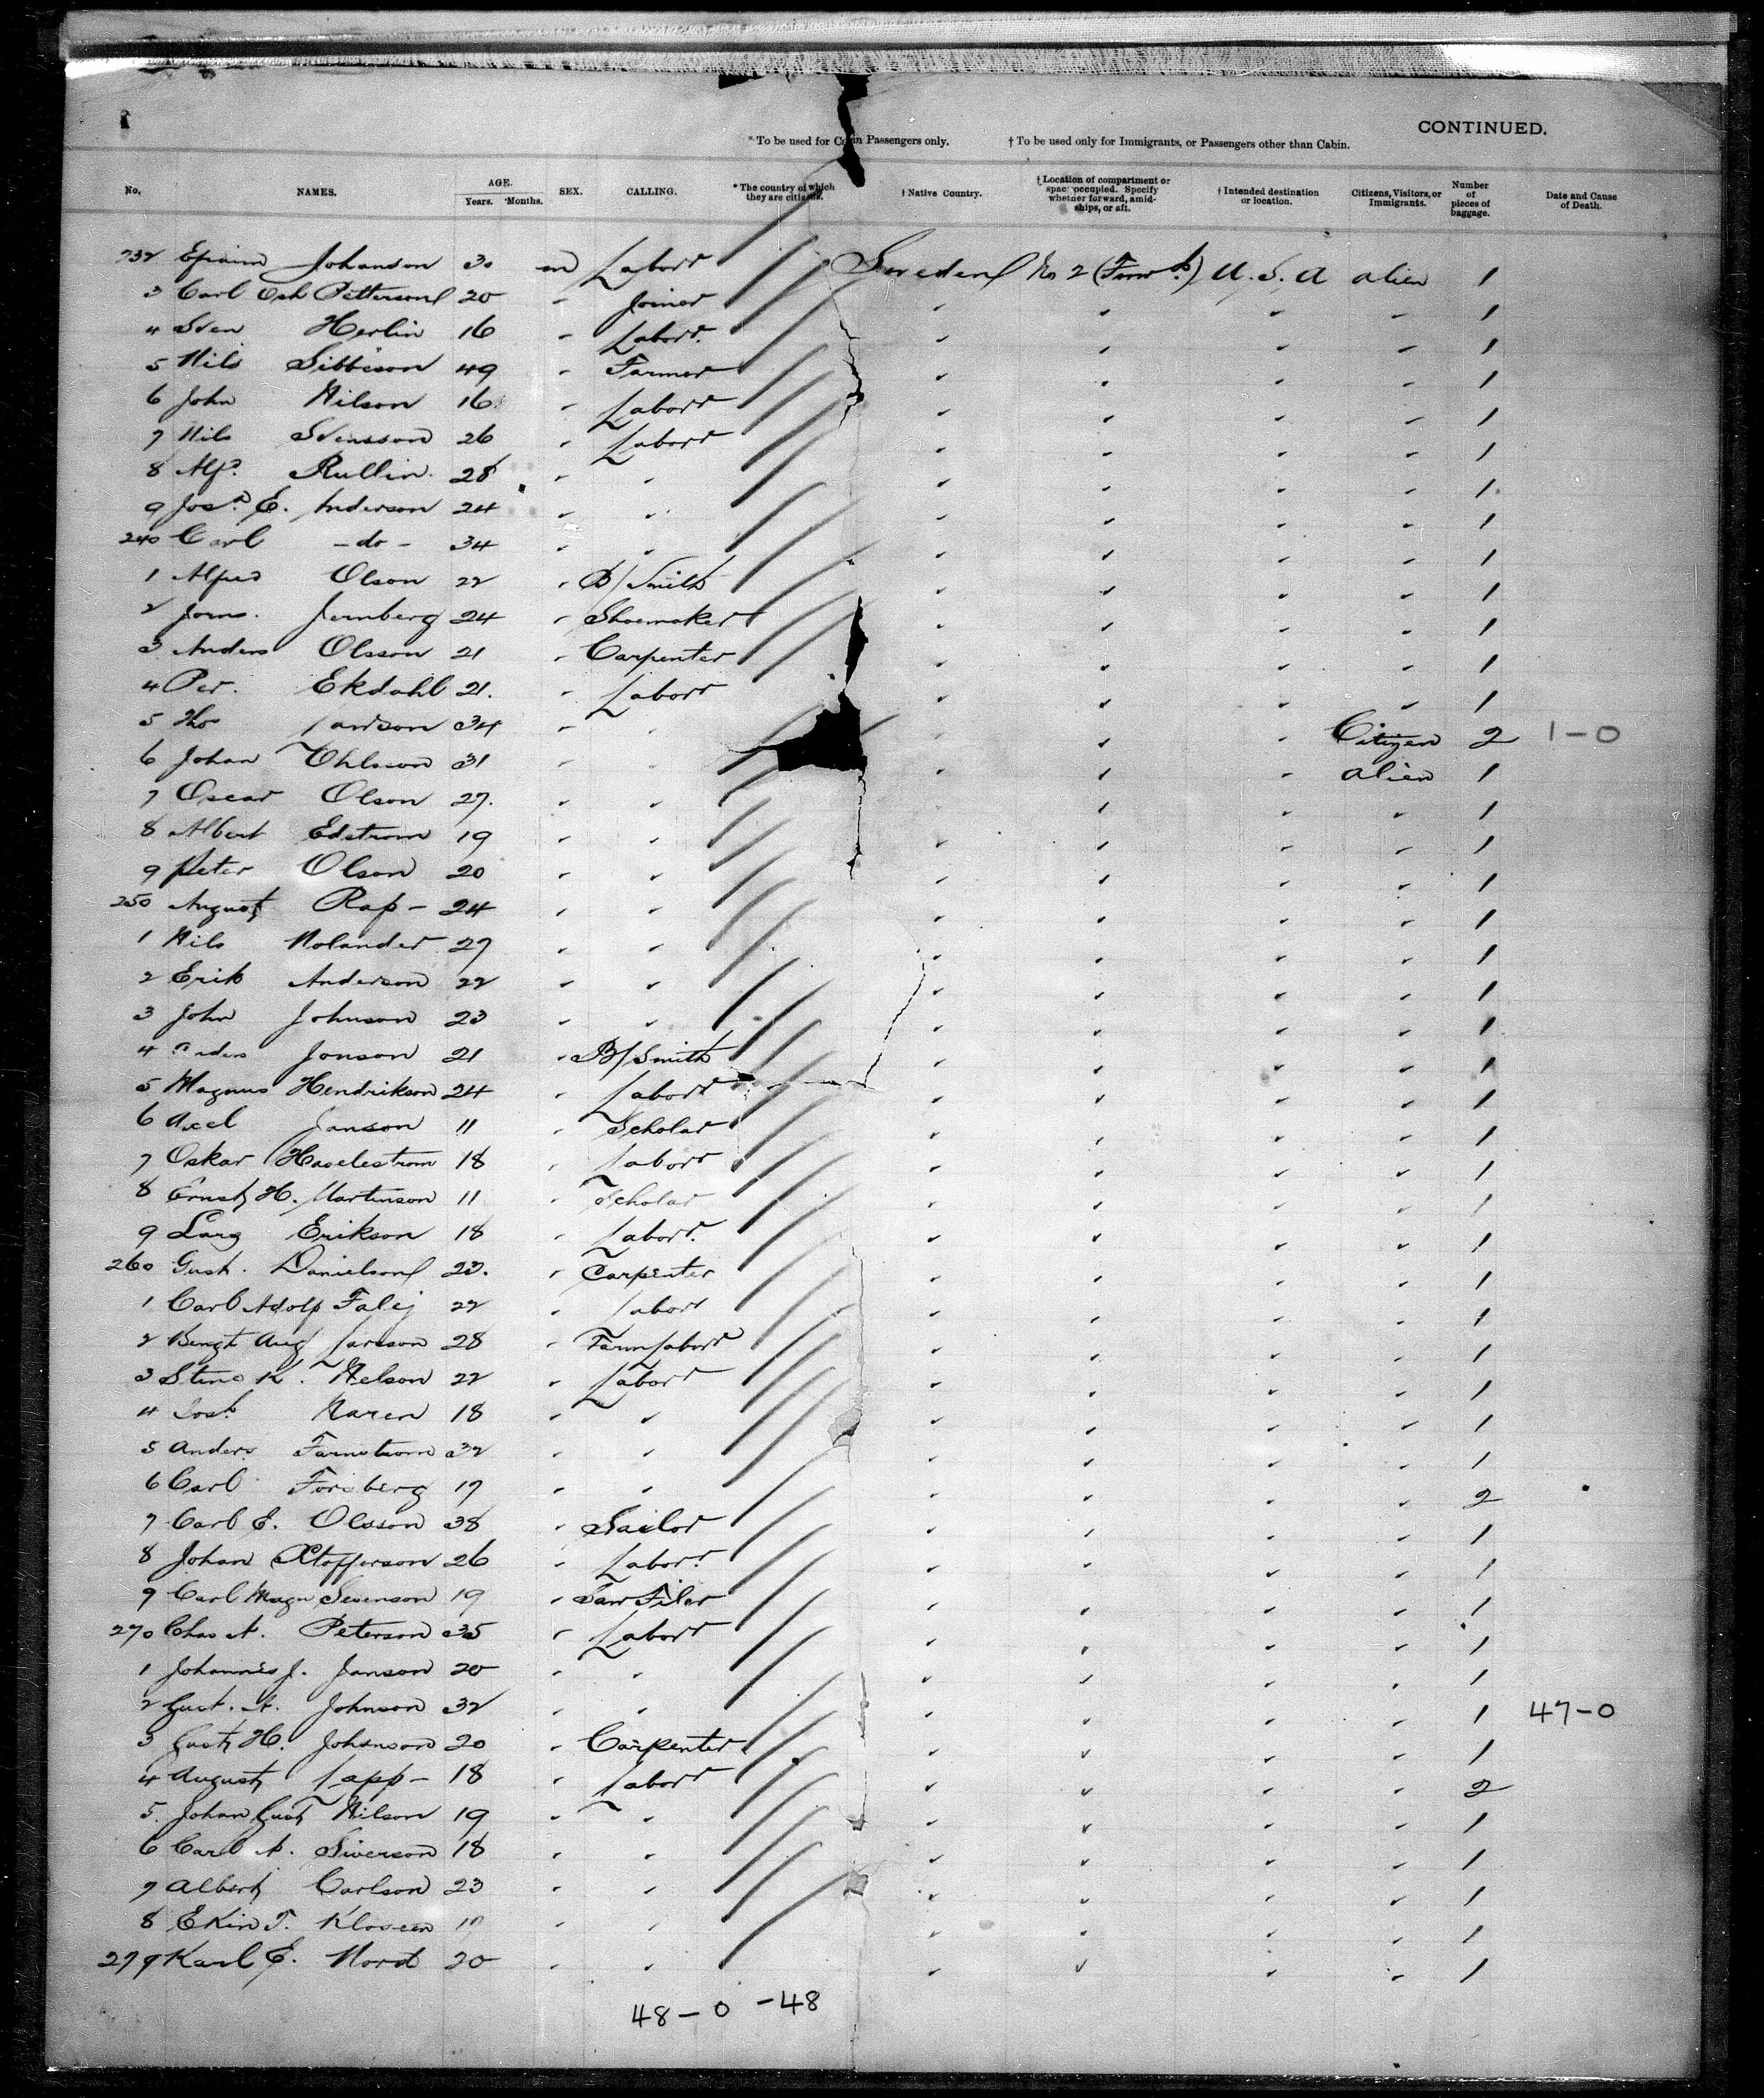 CONTINUED.
* To be used for Cabin Passengers only. † To be used only for Immigrants, or Passengers other than Cabin.
No. NAMES. AGE. Years. Months. SEX. CALLING. * The country of which they are citizens. † Native Country. † Location of compartment or space occupied. Specify whether forward, amidships, or aft. † Intended destination or location. Citizens, Visitors, or Immigrants. Number of pieces of baggage. Date and Cause of Death.
232 Efraim Johanson 30 m Laborr Sweden No 2 (Forwd) U.S.A alien 1
3 Carl Osk Petterson 20 " Joiner " " " " 1
4 Sven Herlin 16 " Laborr " " " " 1
5 Nils Sibbeson 49 " Farmer " " " " 1
6 John Nilson 16 " Laborr " " " " 1
7 Nils Svensson 26 " Laborr " " " " 1
8 Alfd Rullin 28 " " " " " " 1
9 E. Anderson 24 " " " " " " 1
240 Carl - do - 34 " " " " " " 1
1 Alfred Olson 22 " B/Smith " " " " 1
2 Jernberg 24 " Shoemaker " " " " 1
3 Anders Olsson 21 " Carpenter " " " " 1
4 Per. Ekdahl 21. " Laborr " " " " 1
5 Larson 34 " " " " " Citizen 2 1-0
6 Johan Ohlsson 31 " " " " " alien 1
7 Oscar Olson 27. " " " " " 1
8 Albert Edstrom 19 " " " " " " 1
9 Peter Olson 20 " " " " " " 1
250 August Rap - 24 " " " " " " 1
1 Nils Molander 27 " " " " " " 1
2 Erik Anderson 22 " " " " " " 1
3 John Johnson 23 " " " " " " 1
4 Anders Jonson 21 " B/Smith " " " " 1
5 Magnus Hendrikson 24 " Laborr " " " " 1
6 Axel Janson 11 " Scholar " " " " 1
7 Oskar Haselestrom 18 " Laborr " " " " 1
8 Ernst H. Martinson 11 " Scholar " " " " 1
9 Lars Erikson 18 " Laborr " " " " 1
260 Gust. Danielson 23. " Carpenter " " " " 1
1 Carl Adolf Falij 22 " Laborr " " " " 1
2 Bengt Aug Larsson 28 " Farm Laborr " " " " 1
3 K. Nelson 22 " Laborr " " " " 1
4 Naren 18 " " " " " " 1
5 Anders Farnstrom 32 " " " " " 1
6 Carl Forsberg 19 " " " " " " 2
7 Carl E. Olsson 38 " Sailor " " " " 1
8 Johan Xtofferson 26 " Laborr " " " 1
9 Carl Magn Svenson 19 " Saw Filer " " " " 1
270 Chas A. Peterson 35 " Laborr " " " " 1
1 Johannes J. Janson 20 " " " " " " 1
2 Gust. A. Johnson 32 " " " " " " 1 47-0
3 Gust H. Johanson 20 " Carpenter " " " " 1
4 August Lapp - 18 " Laborr " " " " 2
5 Johan Gust Nilson 19 " " " " " 1
6 Carl A. Siverson 18 " " " " " " 1
7 Albert Carlson 23 " " " " " " 1
8 T. " " " " " " 1
279 Karl E. Nord 20 " " " " " " 1
48 - 0 - 48